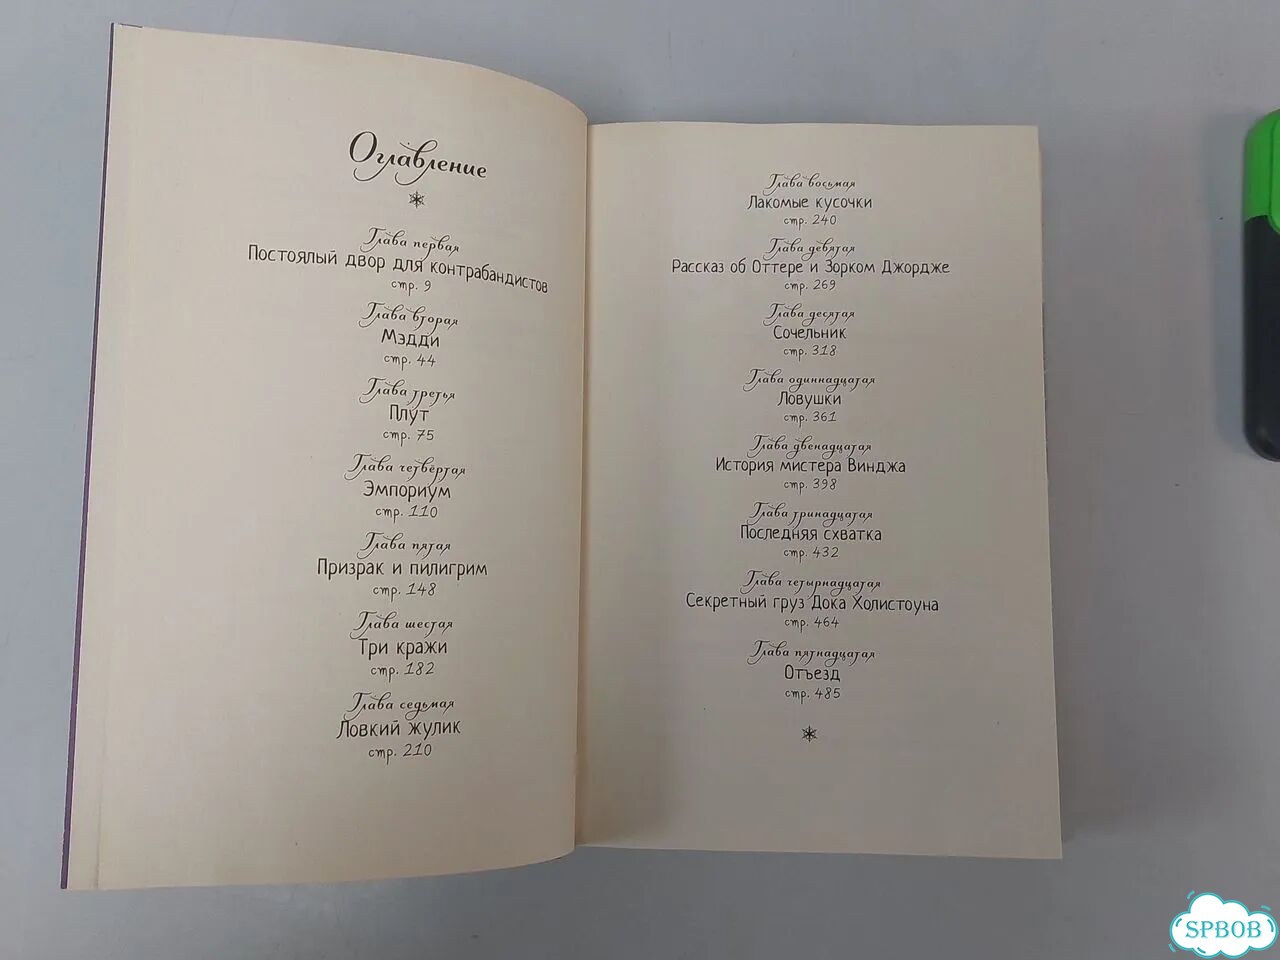 Оглавление
Глава первая
Постоялый двор для контрабандистов
стр. 9
Глава вторая
Мэдди
стр. 44
Глава третья
Плут
стр. 75
Глава четвёртая
Эмпориум
стр. 110
Глава пятая
Призрак и пилигрим
стр. 148
Глава шестая
Три кражи
стр. 182
Глава седьмая
Ловкий жулик
стр. 210
Глава восьмая
Лакомые кусочки
стр. 240
Глава девятая
Рассказ об Оттере и Зорком Джордже
стр. 269
Глава десятая
Сочельник
стр. 318
Глава одиннадцатая
Ловушки
стр. 361
Глава двенадцатая
История мистера Винджа
стр. 398
Глава тринадцатая
Последняя схватка
стр. 432
Глава четырнадцатая
Секретный груз Дока Холистоуна
стр. 464
Глава пятнадцатая
Отъезд
стр. 485
SPBOB